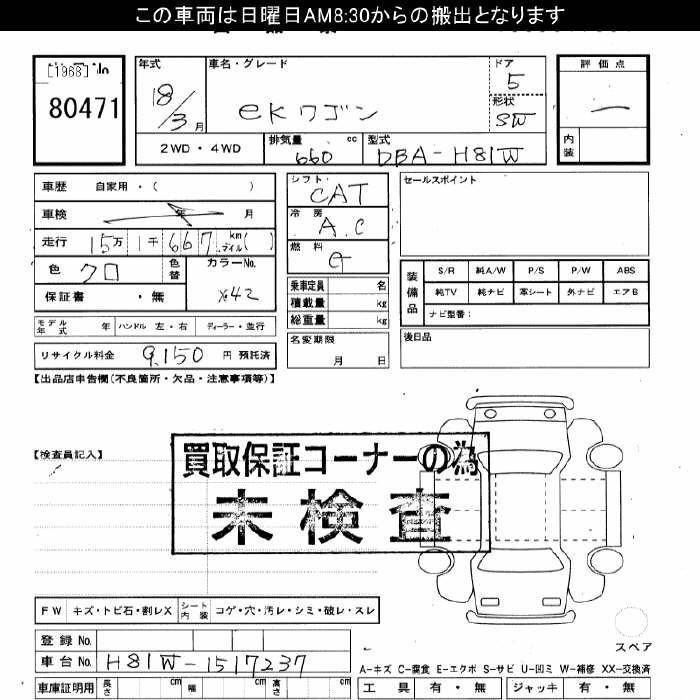 この車両は日曜日AM8:30からの搬出となります
[1968] No
80471
年式
18/3月
車名・グレード
eKワゴン
ドア
5
形状
SW
評価点
―
内装
2WD・4WD
排気量 cc
660
型式
DBA-H81W
車歴 自家用・( )
車検 年 月
走行 15万1千667 km マイル( )
色 クロ
色替
カラーNo.
X42
保証書 ・無
モデル年式 年 ハンドル 左・右 ディーラー・並行
リサイクル料金 9,150 円 預託済
シフト
CAT
冷房
A.C
燃料
G
乗車定員 名
積載量 kg
総重量 kg
名変期限
月 日
セールスポイント
装備品
S/R 純A/W P/S P/W ABS
純TV 純ナビ 革シート 外ナビ エアB
ナビ型番:
後日品
【出品店申告欄(不良箇所・欠品・注意事項等)】
【検査員記入】
買取保証コーナーの為
未検査
FW キズ・トビ石・割レX シート内装 コゲ・穴・汚レ・シミ・破レ・スレ
登録No.
車台No. H81W-1517237
車庫証明用 長さ cm 幅 cm 高さ cm
スペア
A-キズ C-腐食 E-エクボ S-サビ U-凹ミ W-補修 XX-交換済
工具 有・無 ジャッキ 有・無